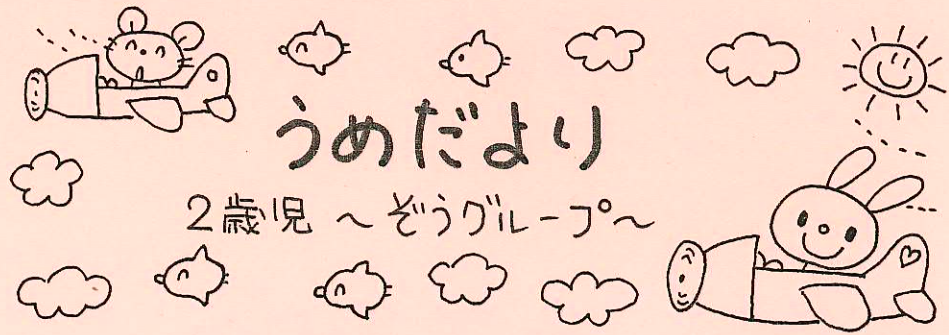 うめだより
2歳児 ～ぞうグループ～